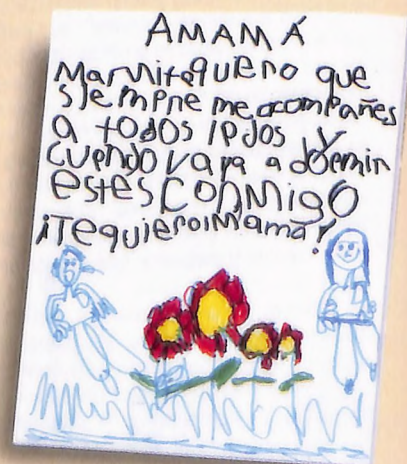 AMAMÁ
Mamitaquiero que
siempre me acompañes
a todos lados y
cuando vaya a dormir
estes conmigo
¡Tequiero!Mamá!